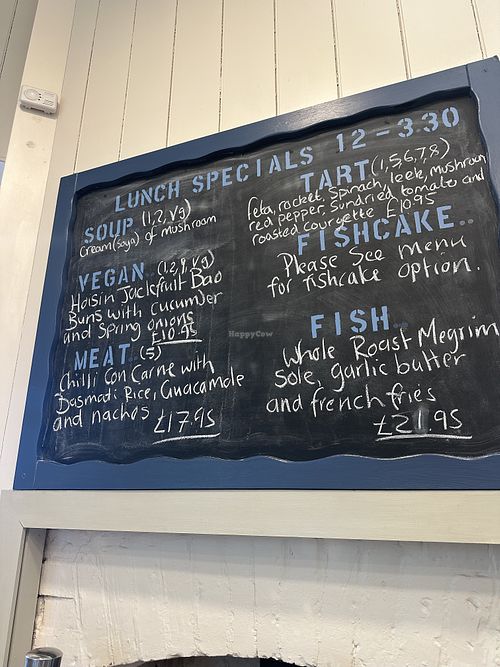 LUNCH SPECIALS 12-3.30
SOUP (1,2,Vg)
Cream (Soya) of mushroom
VEGAN (1,2,9,Vg)
Hoisin Jackfruit Bao
Buns with cucumber
and Spring onions
£10.95
MEAT.. (5)
Chilli Con Carne with
Basmati Rice, Guacamole
and nachos £17.95
TART (1,5,6,7,8)
feta, rocket, Spinach, leek, mushroom
red pepper, Sundried tomato and
roasted Courgette £10.95
FISHCAKE..
Please See menu
for fishcake option.
FISH..
Whole Roast Megrim
Sole, garlic butter
and french fries
£21.95
HappyCow